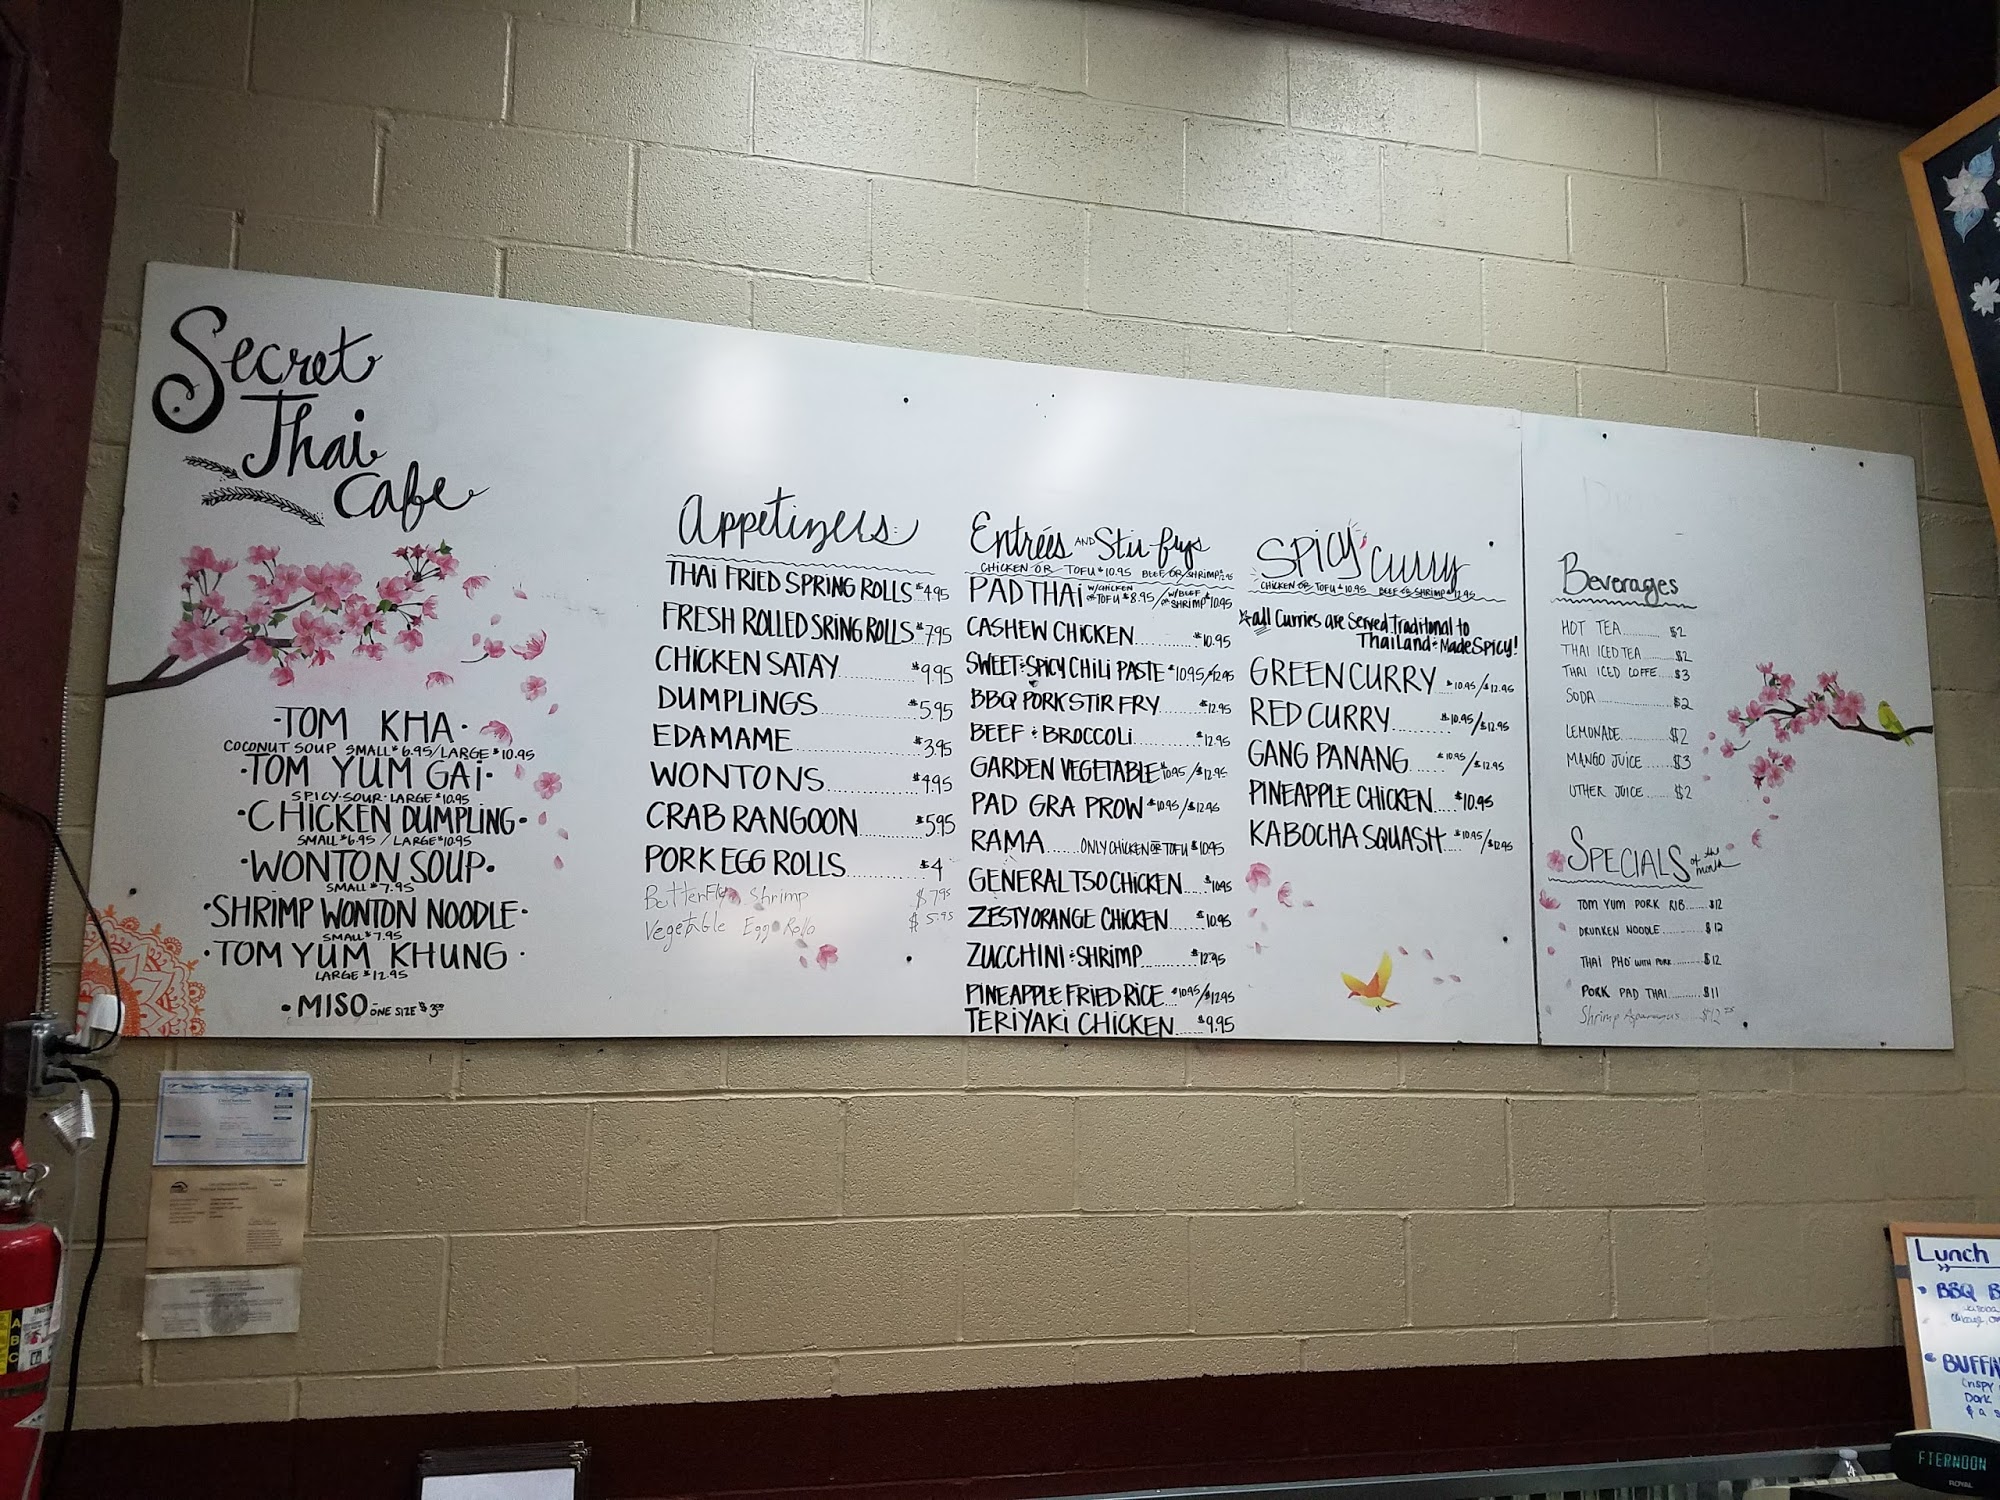 Secret
Thai
Cafe
·TOM KHA·
COCONUT SOUP SMALL $6.95/LARGE $10.95
·TOM YUM GAI·
SPICY·SOUR·LARGE $10.95
·CHICKEN DUMPLING·
SMALL $6.95 / LARGE $10.95
·WONTON SOUP·
SMALL $7.95
·SHRIMP WONTON NOODLE·
SMALL $7.95
·TOM YUM KHUNG·
LARGE $12.95
·MISO ONE SIZE $3.00
Appetizers:
THAI FRIED SPRING ROLLS $4.95
FRESH ROLLED SRING ROLLS $7.95
CHICKEN SATAY $9.95
DUMPLINGS $5.95
EDAMAME $3.95
WONTONS $4.95
CRAB RANGOON $5.95
PORK EGG ROLLS $4
ButterFly Shrimp $7.95
Vegetable Egg Rolls $5.95
Entrées AND Stir frys
CHICKEN OR TOFU $10.95 BEEF OR SHRIMP $12.95
PAD THAI W/CHICKEN OR TOFU $8.95 / W/BEEF OR SHRIMP $10.95
CASHEW CHICKEN $10.95
SWEET & SPICY CHILI PASTE $10.95/12.95
BBQ PORK STIR FRY $12.95
BEEF & BROCCOLI $12.95
GARDEN VEGETABLE $10.95/$12.95
PAD GRA PROW $10.95/$12.95
RAMA ONLY CHICKEN OR TOFU $10.95
GENERAL TSO CHICKEN $10.95
ZESTY ORANGE CHICKEN $10.95
ZUCCHINI & SHRIMP $12.95
PINEAPPLE FRIED RICE $10.95/$12.95
TERIYAKI CHICKEN $9.95
SPICY CURRY
CHICKEN OR TOFU $10.95 BEEF OR SHRIMP $12.95
☆all Curries are Served traditional to
Thailand & Made SPICY!
GREEN CURRY $10.95/$12.95
RED CURRY $10.95/$12.95
GANG PANANG $10.95/$12.95
PINEAPPLE CHICKEN $10.95
KABOCHA SQUASH $10.95/$12.95
Beverages
HOT TEA $2
THAI ICED TEA $2
THAI ICED COFFE $3
SODA $2
LEMONADE $2
MANGO JUICE $3
OTHER JUICE $2
SPECIALS of the month
TOM YUM PORK RIB $12
DRUNKEN NOODLE $12
THAI PHO WITH PORK $12
PORK PAD THAI $11
Shrimp Asparagus
Lunch
BBQ B
BUFFA
Crispy
Dark
& a s
A
B
C
FTERNOON
ROYAL